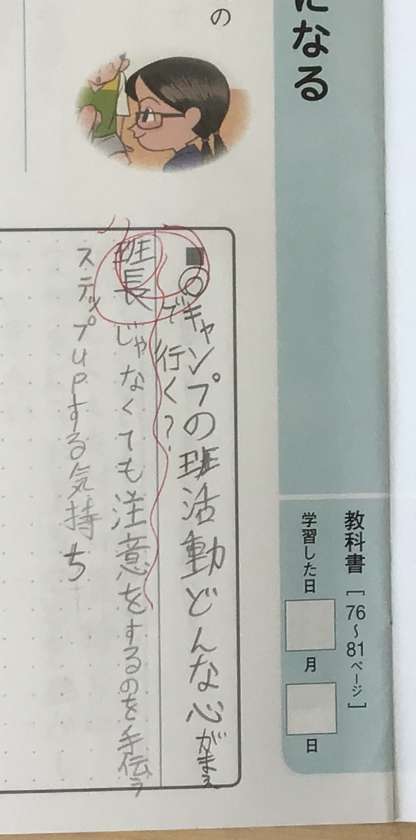 になる
教科書[76〜81ページ]
学習した日 月 日
の
■のキャンプの班活動どんな心がまえ
で行く?
班長じゃなくても注意をするのを手伝う
ステップupする気持ち